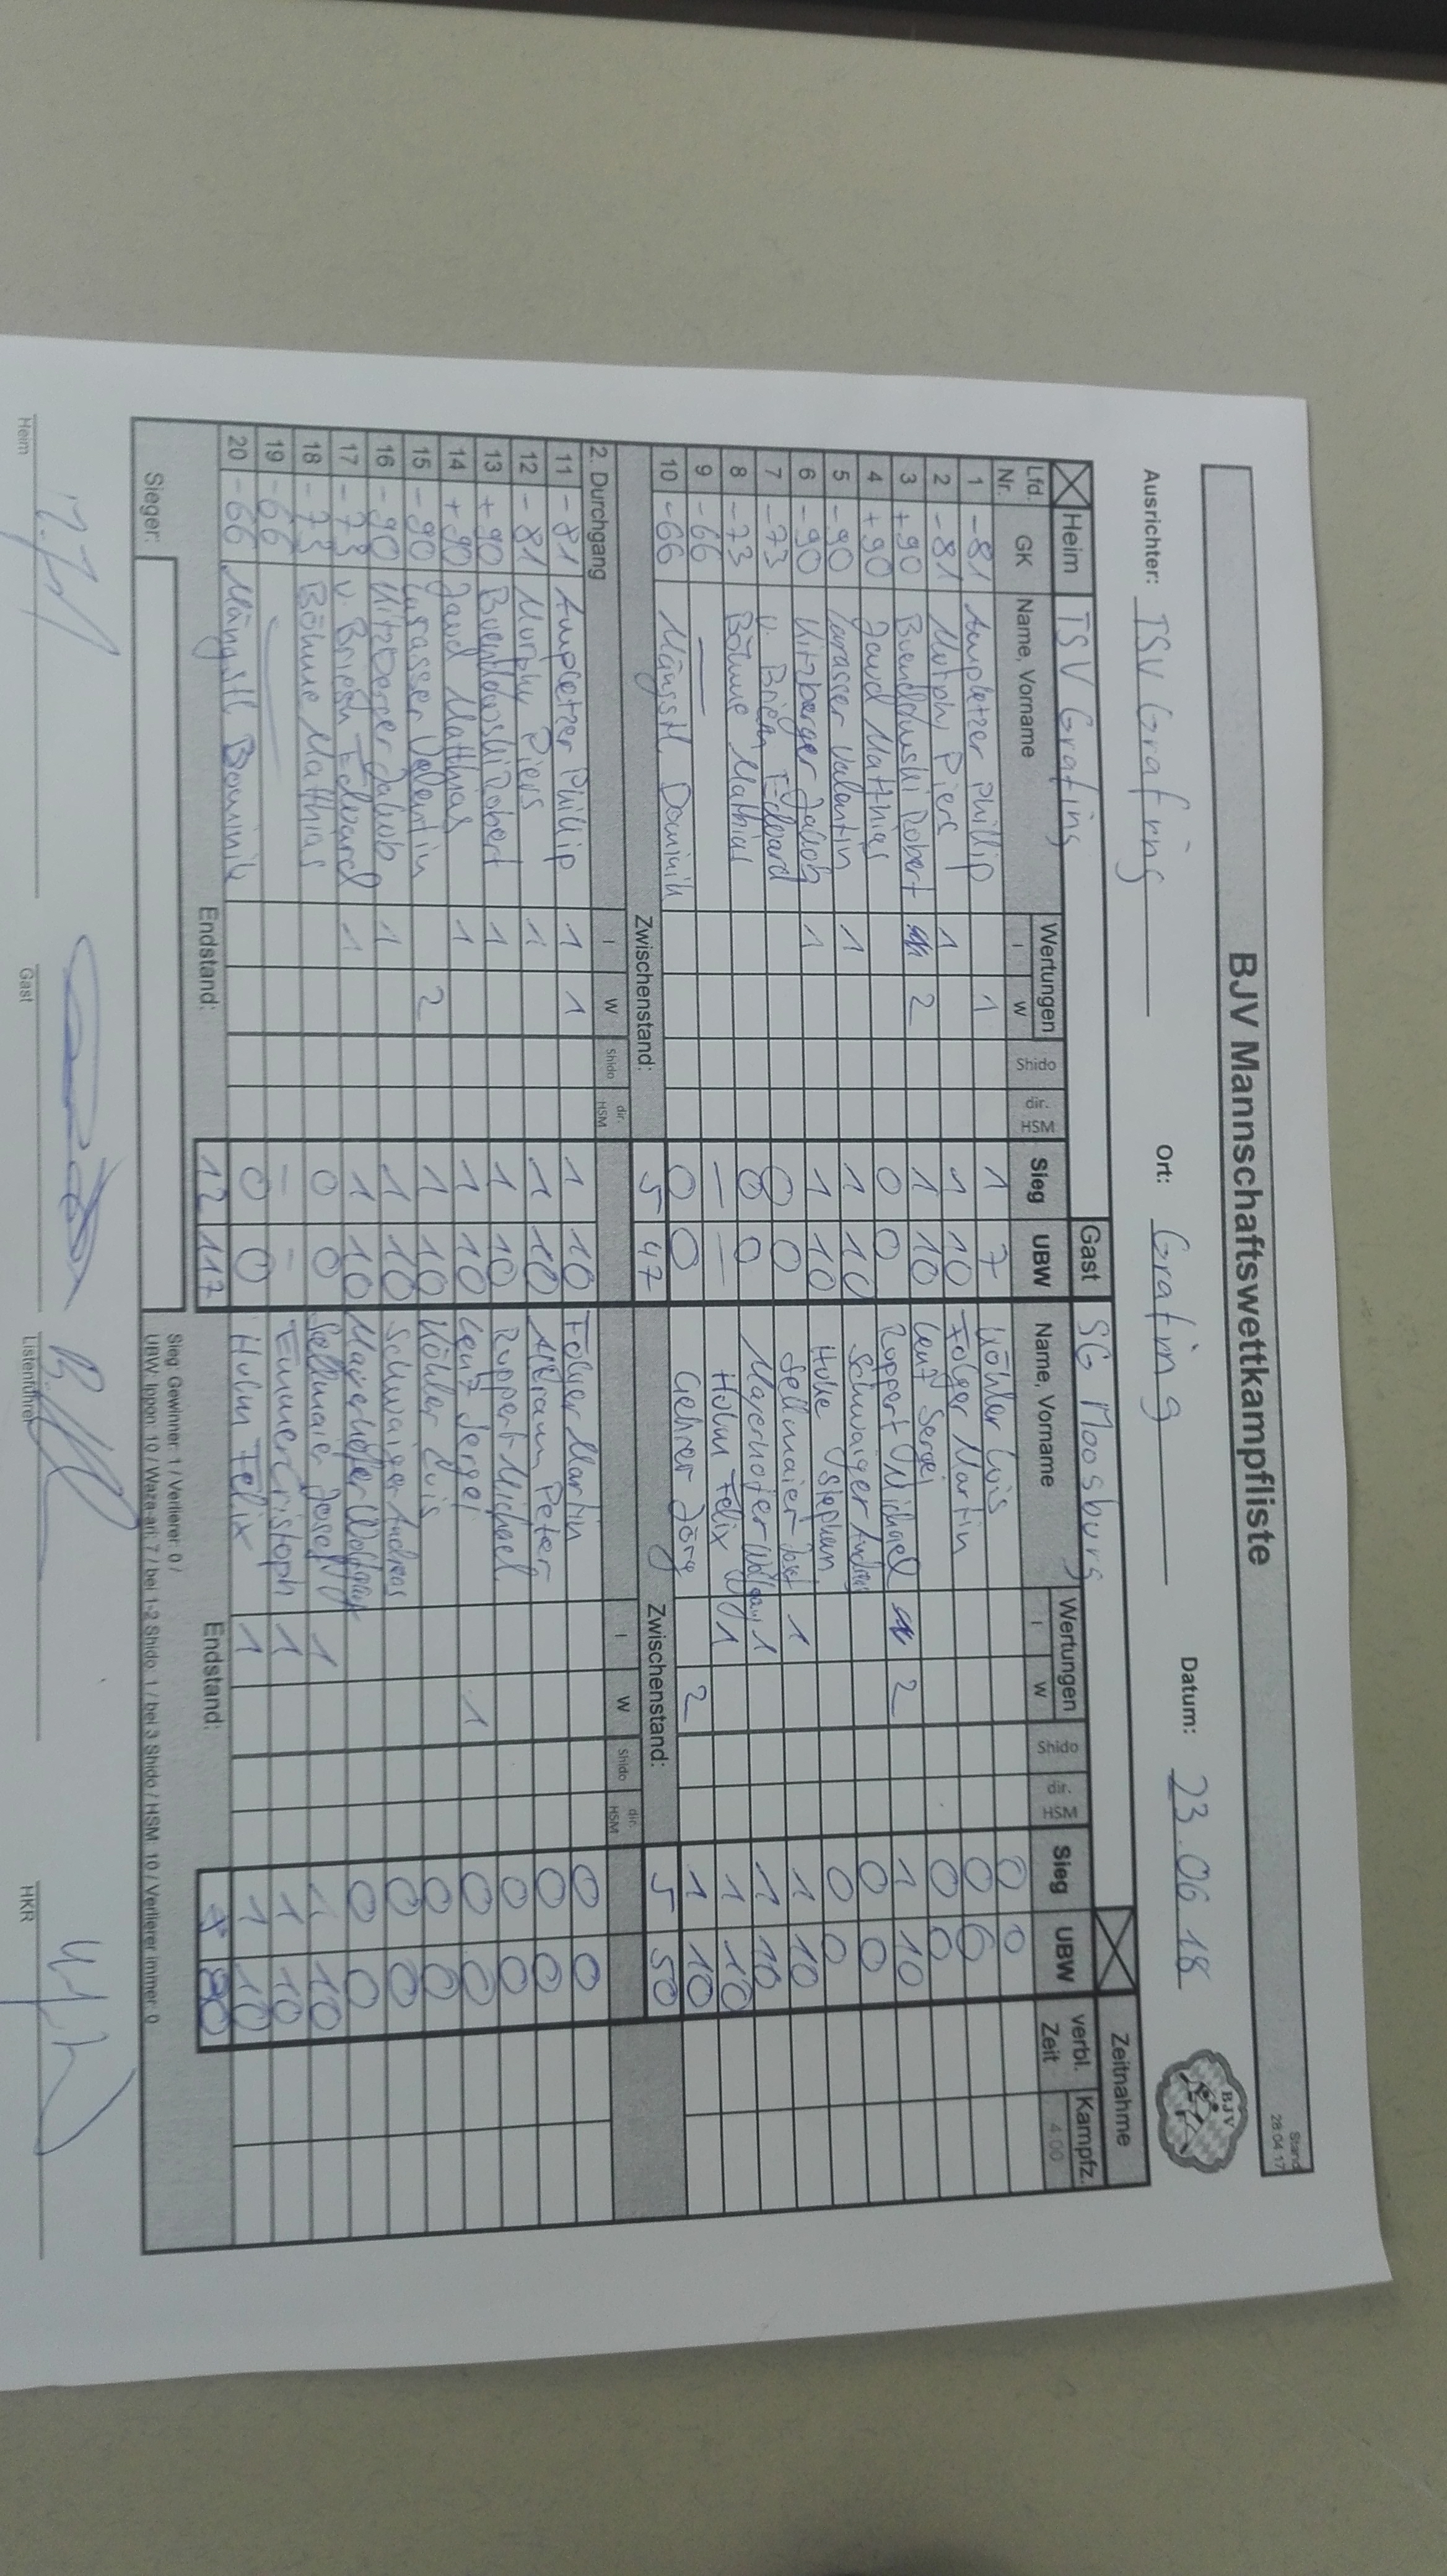 BJV Mannschaftswettkampfliste
Stand 28.04.17
Ausrichter: TSV Grafing Ort: Grafing Datum: 23.06.18
BJV
Heim TSV Grafing Gast SG Moosburg Zeitnahme
Lfd. Nr. GK Name, Vorname Wertungen I W Shido dir. HSM Sieg UBW Name, Vorname Wertungen I W Shido dir. HSM Sieg UBW verbl. Zeit Kampfz. 4:00
1 -81 Ampletzer Phillip 1 1 7 Köhler Luis 0 0
2 -81 Murphy Piers 1 1 10 Folger Martin 0 0
3 +90 Robert 2 1 10 Lenz Sergei 0 0
4 +90 Jaud Matthias 0 0 Ruppert Michael 2 1 10
5 -90 Valentin 1 1 10 Schwaiger 0 0
6 -90 Kitzberger Jakob 1 1 10 Hohe Stephan 0 0
7 -73 v. Brien Edward 0 0 Sellmaier Josef 1 1 10
8 -73 Böhme Mathias 0 0 Mayerhofer Wolfgang 1 1 10
9 -66 — — — Holm Felix 1 1 10
10 -66 Mängstl Dominik 0 0 Gehrer Jörg 2 1 10
Zwischenstand: 5 47 Zwischenstand: 5 50
2. Durchgang I W Shido dir. HSM I W Shido dir. HSM
11 -81 Ampletzer Phillip 1 1 1 10 Folger Martin 0 0
12 -81 Murphy Piers 1 1 10 Peter 0 0
13 +90 Robert 1 1 10 Ruppert Michael 0 0
14 +90 Jaud Matthias 1 1 10 Lenz Sergei 1 0 0
15 -90 Valentin 2 1 10 Köhler Luis 0 0
16 -90 Kitzberger Jakob 1 1 10 Schwaiger Andreas 0 0
17 -73 v. Briesn Edward 1 1 10 Mayerhofer Wolfgang 0 0
18 -73 Böhme Matthias 0 0 Sellmaier Josef 1 1 10
19 -66 — — — Emmer Cristoph 1 1 10
20 -66 Mängstl Dominik 0 0 Holm Felix 1 1 10
Endstand: 12 117 Endstand: 80
Sieger:
Sieg: Gewinner: 1 / Verlierer: 0 /
UBW: Ippon: 10 / Waza-ari: 7 / bei 1-2 Shido: 1 / bei 3 Shido / HSM: 10 / Verlierer immer: 0
Heim Gast Listenführer HKR